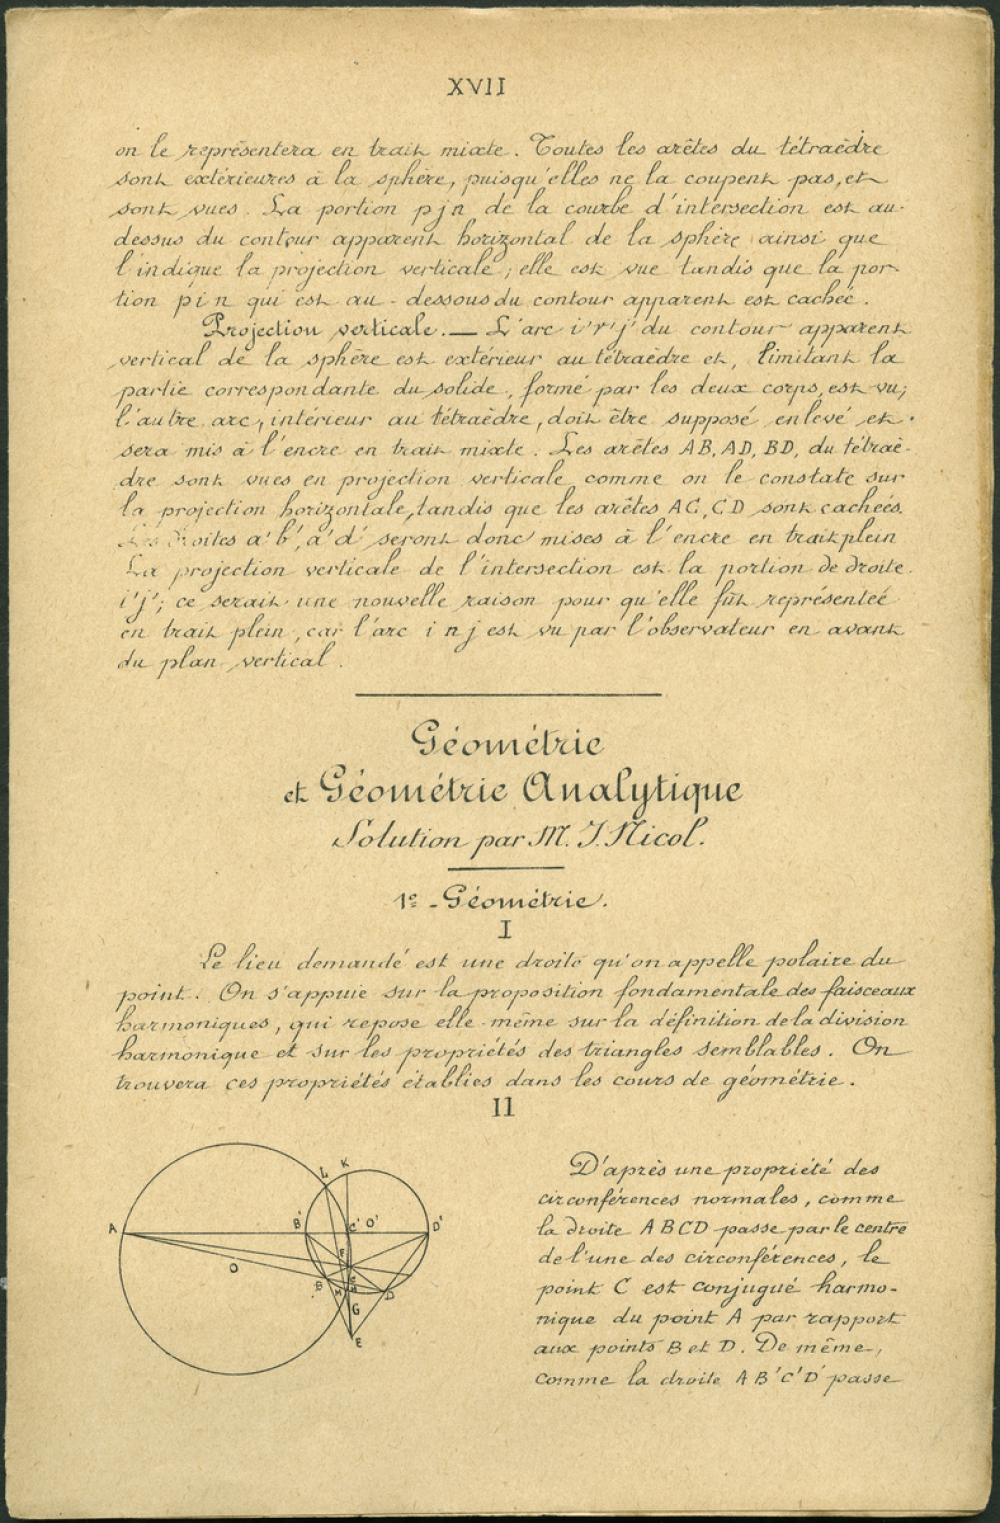 XVII
on le représentera en trait mixte. Toutes les arêtes du tétraèdre
sont extérieures à la sphère, puisqu'elles ne la coupent pas, et
sont vues. La portion pjn de la courbe d'intersection est au-
dessus du contour apparent horizontal de la sphère ainsi que
l'indique la projection verticale; elle est vue tandis que la por-
tion pin qui est au-dessous du contour apparent est cachée.
Projection verticale. — L'arc i'r'j' du contour apparent
vertical de la sphère est extérieur au tétraèdre et, limitant la
partie correspondante du solide, formé par les deux corps, est vu;
l'autre arc, intérieur au tétraèdre, doit être supposé enlevé et
sera mis à l'encre en trait mixte. Les arêtes AB, AD, BD, du tétraè-
dre sont vues en projection verticale comme on le constate sur
la projection horizontale, tandis que les arêtes AC, CD sont cachées.
Les droites a'b', a'd' seront donc mises à l'encre en trait plein
La projection verticale de l'intersection est la portion de droite
i'j'; ce serait une nouvelle raison pour qu'elle fût représentée
en trait plein, car l'arc inj est vu par l'observateur en avant
du plan vertical.
Géométrie
et Géométrie Analytique
Solution par M. J. Nicol.
1º - Géométrie.
I
Le lieu demandé est une droite qu'on appelle polaire du
point. On s'appuie sur la proposition fondamentale des faisceaux
harmoniques, qui repose elle-même sur la définition de la division
harmonique et sur les propriétés des triangles semblables. On
trouvera ces propriétés établies dans les cours de géométrie.
II
L K
A B' C' O' D'
O F
B H D
G
E
D'après une propriété des
circonférences normales, comme
la droite ABCD passe par le centre
de l'une des circonférences, le
point C est conjugué harmo-
nique du point A par rapport
aux points B et D. De même,
comme la droite AB'C'D' passe